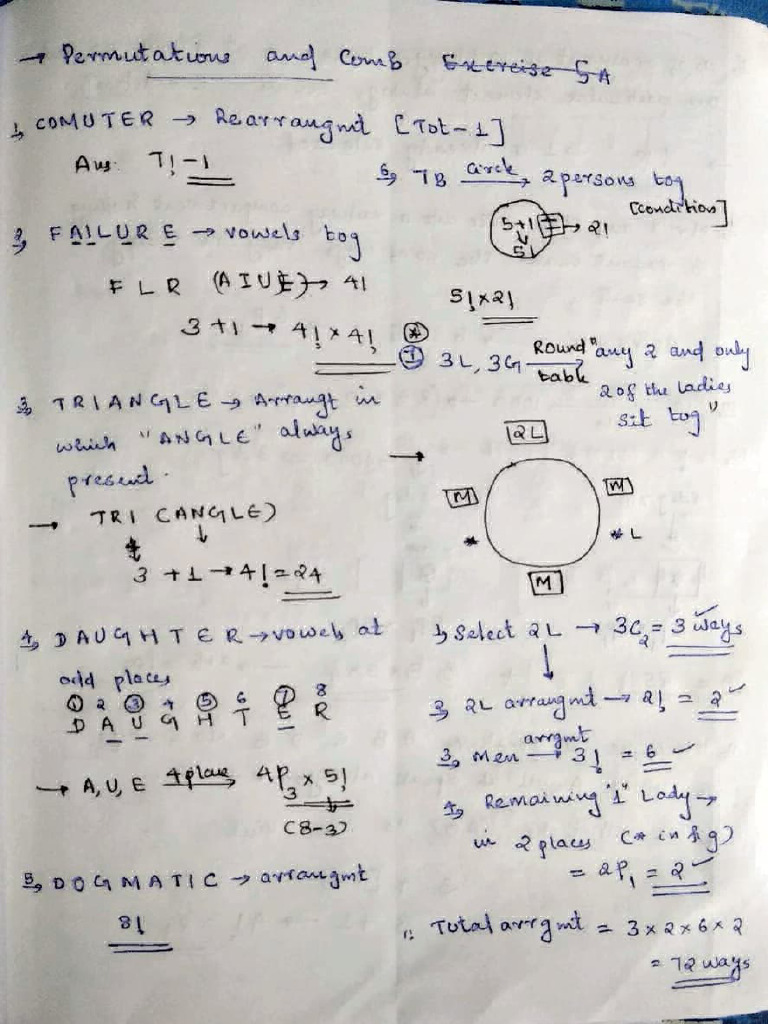 → Permutations and Comb, Exercise 5A
1, COMUTER → Rearrangmt [Tot-1]
Ans: 7!-1
2, FAILURE → vowels tog
F L R (AIUE) → 4!
3+1 → 4! × 4!
3, TRIANGLE → Arrangt in
which "ANGLE" always
present.
→ TRI (ANGLE)
↓ ↓
3 +1 → 4! = 24
4, DAUGHTER → vowels at
odd places
① 2 ③ 4 ⑤ 6 ⑦ 8
D A U G H T E R
→ A, U, E 4 place → 4P3 × 5!
(8-3)
5, DOGMATIC → arrangmt
8!
6, 7B circle → 2 persons tog
[condition]
5+1 → 2!
5!
5! × 2!
*
7 3L, 3G Round table → "any 2 and only
2 of the ladies
sit tog"
→ 2L
M M
* * L
M
1, Select 2L → 3C2 = 3 ways
↓
2, 2L arrangmt → 2! = 2 ✓
3, Men arrgmt → 3! = 6 ✓
4, Remaining "1" Lady →
in 2 places (* in fig)
= 2P1 = 2 ✓
∴ Total arrgmt = 3 × 2 × 6 × 2
= 72 ways